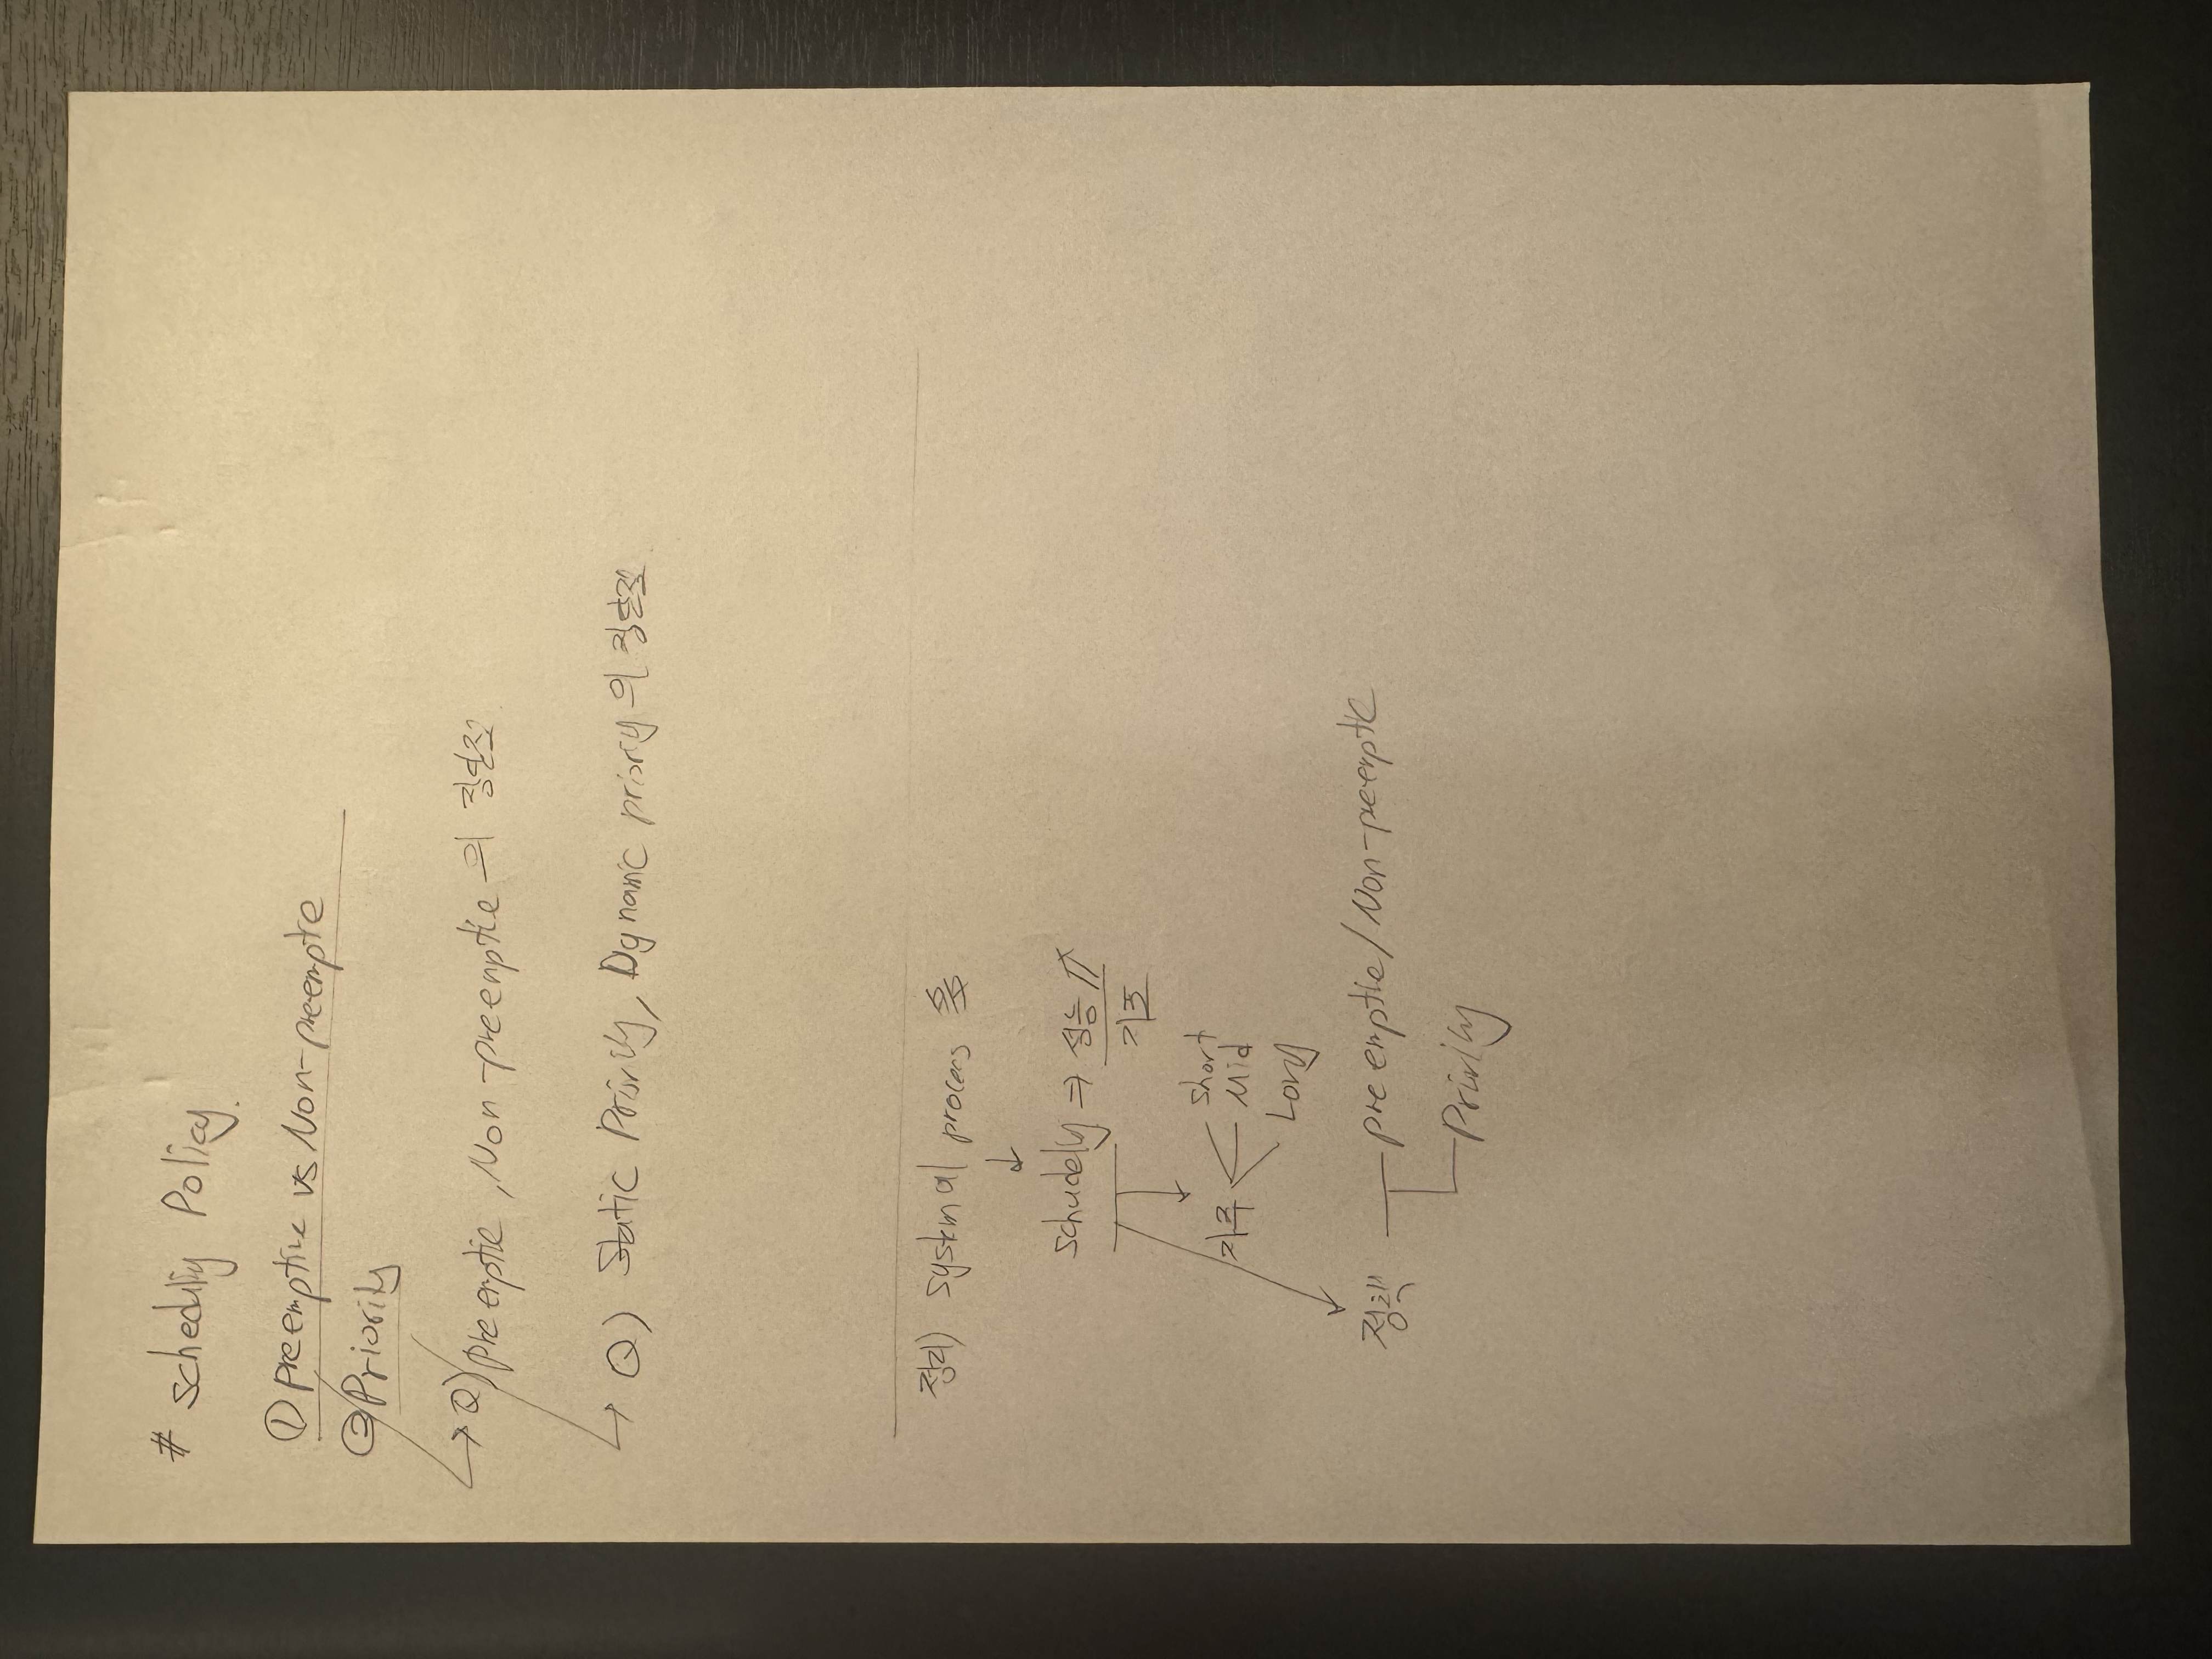 # scheduling Policy.
① preemptive vs Non-preemptive
② Priority
→ Q) preemptive, Non-preemptive의 장단점.
→ Q) Static Priority, Dynamic priority의 장단점.
정리) system에 process 多
↓
schudeling ⇒ 성능 ⇈
기준
기준
short
Mid
Long
정책
preemptive / Non-preemptive
Priority